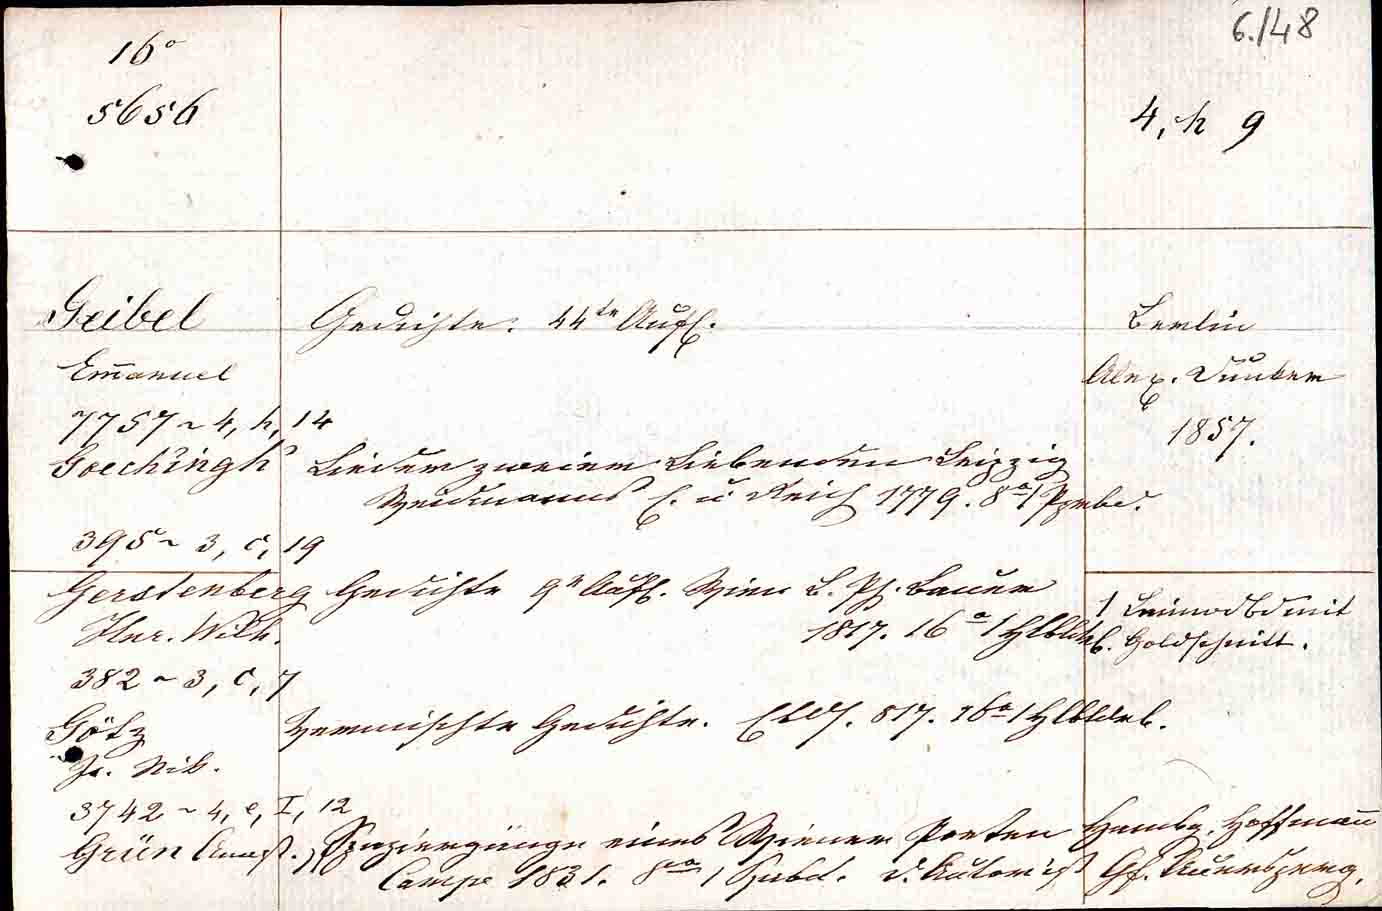 16° 6./48
5656 4, h 9
Geibel Gedichte. 44te Aufl. Berlin
Em̄anuel Alex. Duncker
7757 ~ 4, h, 14 1857.
Goeckingk Lieder zweier Liebenden Leipzig
Weidmanns E. u Reich 1779. 8° 1 Ppbd.
395 ~ 3, c, 19
Gerstenberg Gedichte Aufl. Wien B. Ph. Bauer 1 Leinwdbd mit
Hnr. Wilh. 1817. 16° 1 Hlbldrb. Goldschnitt.
382 ~ 3, c, 7
Götz Vermischte Gedichte. Ebd. 817. 16° 1 Hlbldrb.
Jo. Nik.
3742 ~ 4, e, I, 12
Grün Anast. Spaziergänge eines Wiener Poeten Hambg. Hoffmañ
Campe 1831. 8° 1 d. Autor ist Gf. Auersperg.